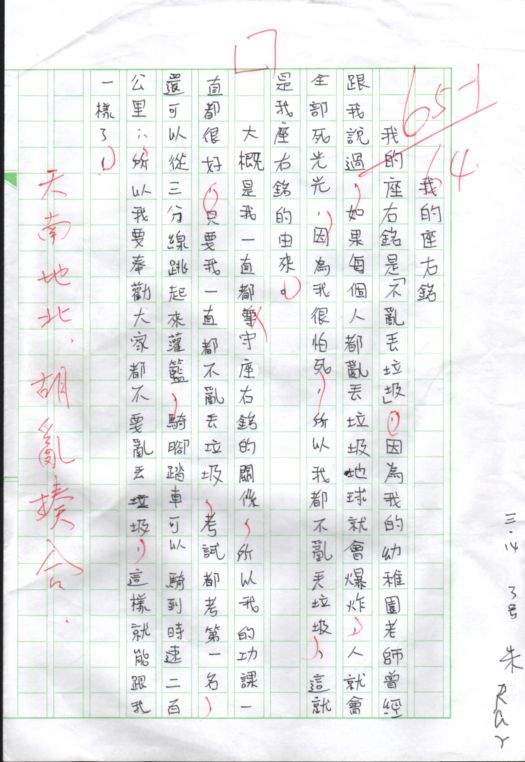 65-1
64.
我的座右銘
我的座右銘是「不亂丟垃圾」,因為我的幼稚園老師曾經
跟我說過,如果每個人都亂丟垃圾地球就會爆炸,人就會
全部死光光,因為我很怕死,所以我都不亂丟垃圾,這就
是我座右銘的由來。
大概是我一直都遵守座右銘的關係,所以我的功課一
直都很好,只要我一直都不亂丟垃圾,考試都考第一名,
還可以從三分線跳起來灌籃,騎腳踏車可以騎到時速二百
公里,所以我要奉勸大家都不要亂丟垃圾,這樣就能跟我
一樣了!
天南地北.胡亂揍合.
三.14 3号 朱